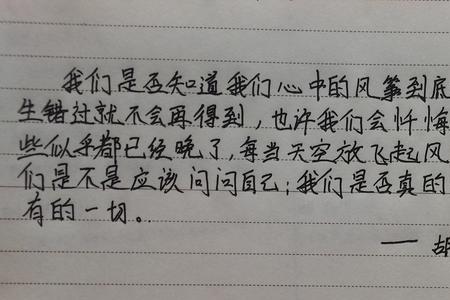 我们是否知道我们心中的风筝到底
生错过就不会再得到，也许我们会忏悔
些似乎都已经晚了，每当天空放飞起风
们是不是应该问问自己；我们是否真的
有的一切。
— 胡